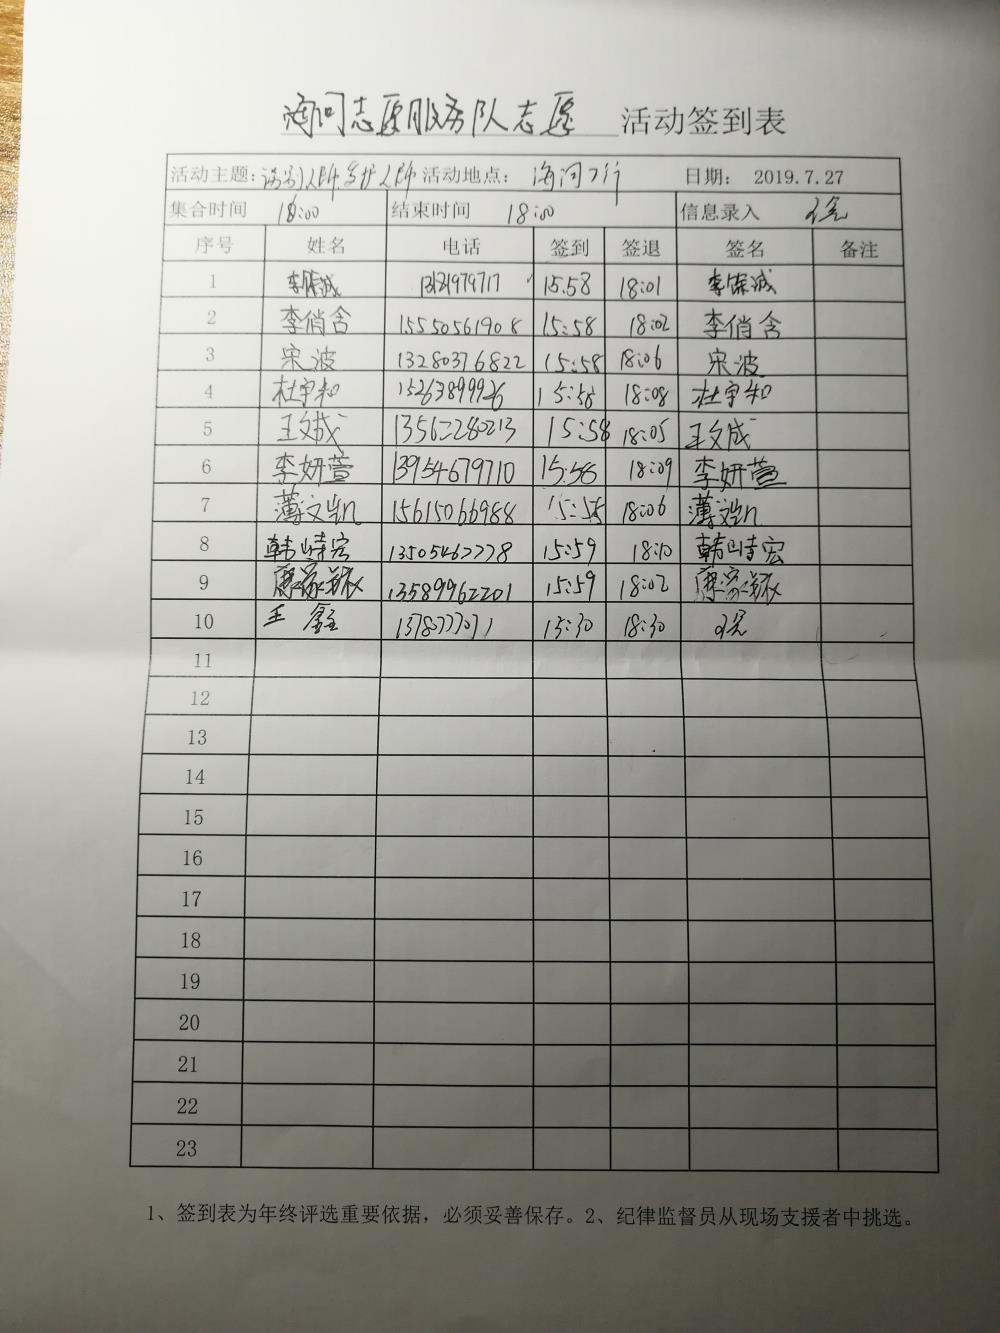 海河志愿服务队志愿 活动签到表
活动主题: 活动地点: 海河 日期: 2019.7.27
集合时间 16:00 结束时间 18:00 信息录入
序号 姓名 电话 签到 签退 签名 备注
1 李保诚 13181979717 15:58 18:01 李保诚
2 李俏含 15550561908 15:58 18:02 李俏含
3 宋波 13280376822 15:58 18:06 宋波
4 杜宇和 15263899926 15:58 18:08 杜宇和
5 王文成 13562280213 15:58 18:05 王文成
6 李妍萱 13954679710 15:58 18:09 李妍萱
7 薄文凯 15615066988 15:58 18:06 薄文凯
8 韩峙宏 13505462778 15:59 18:10 韩峙宏
9 13589962201 15:59 18:02
10 王鑫 15:30 18:30
11
12
13
14
15
16
17
18
19
20
21
22
23
1、签到表为年终评选重要依据，必须妥善保存。2、纪律监督员从现场支援者中挑选。